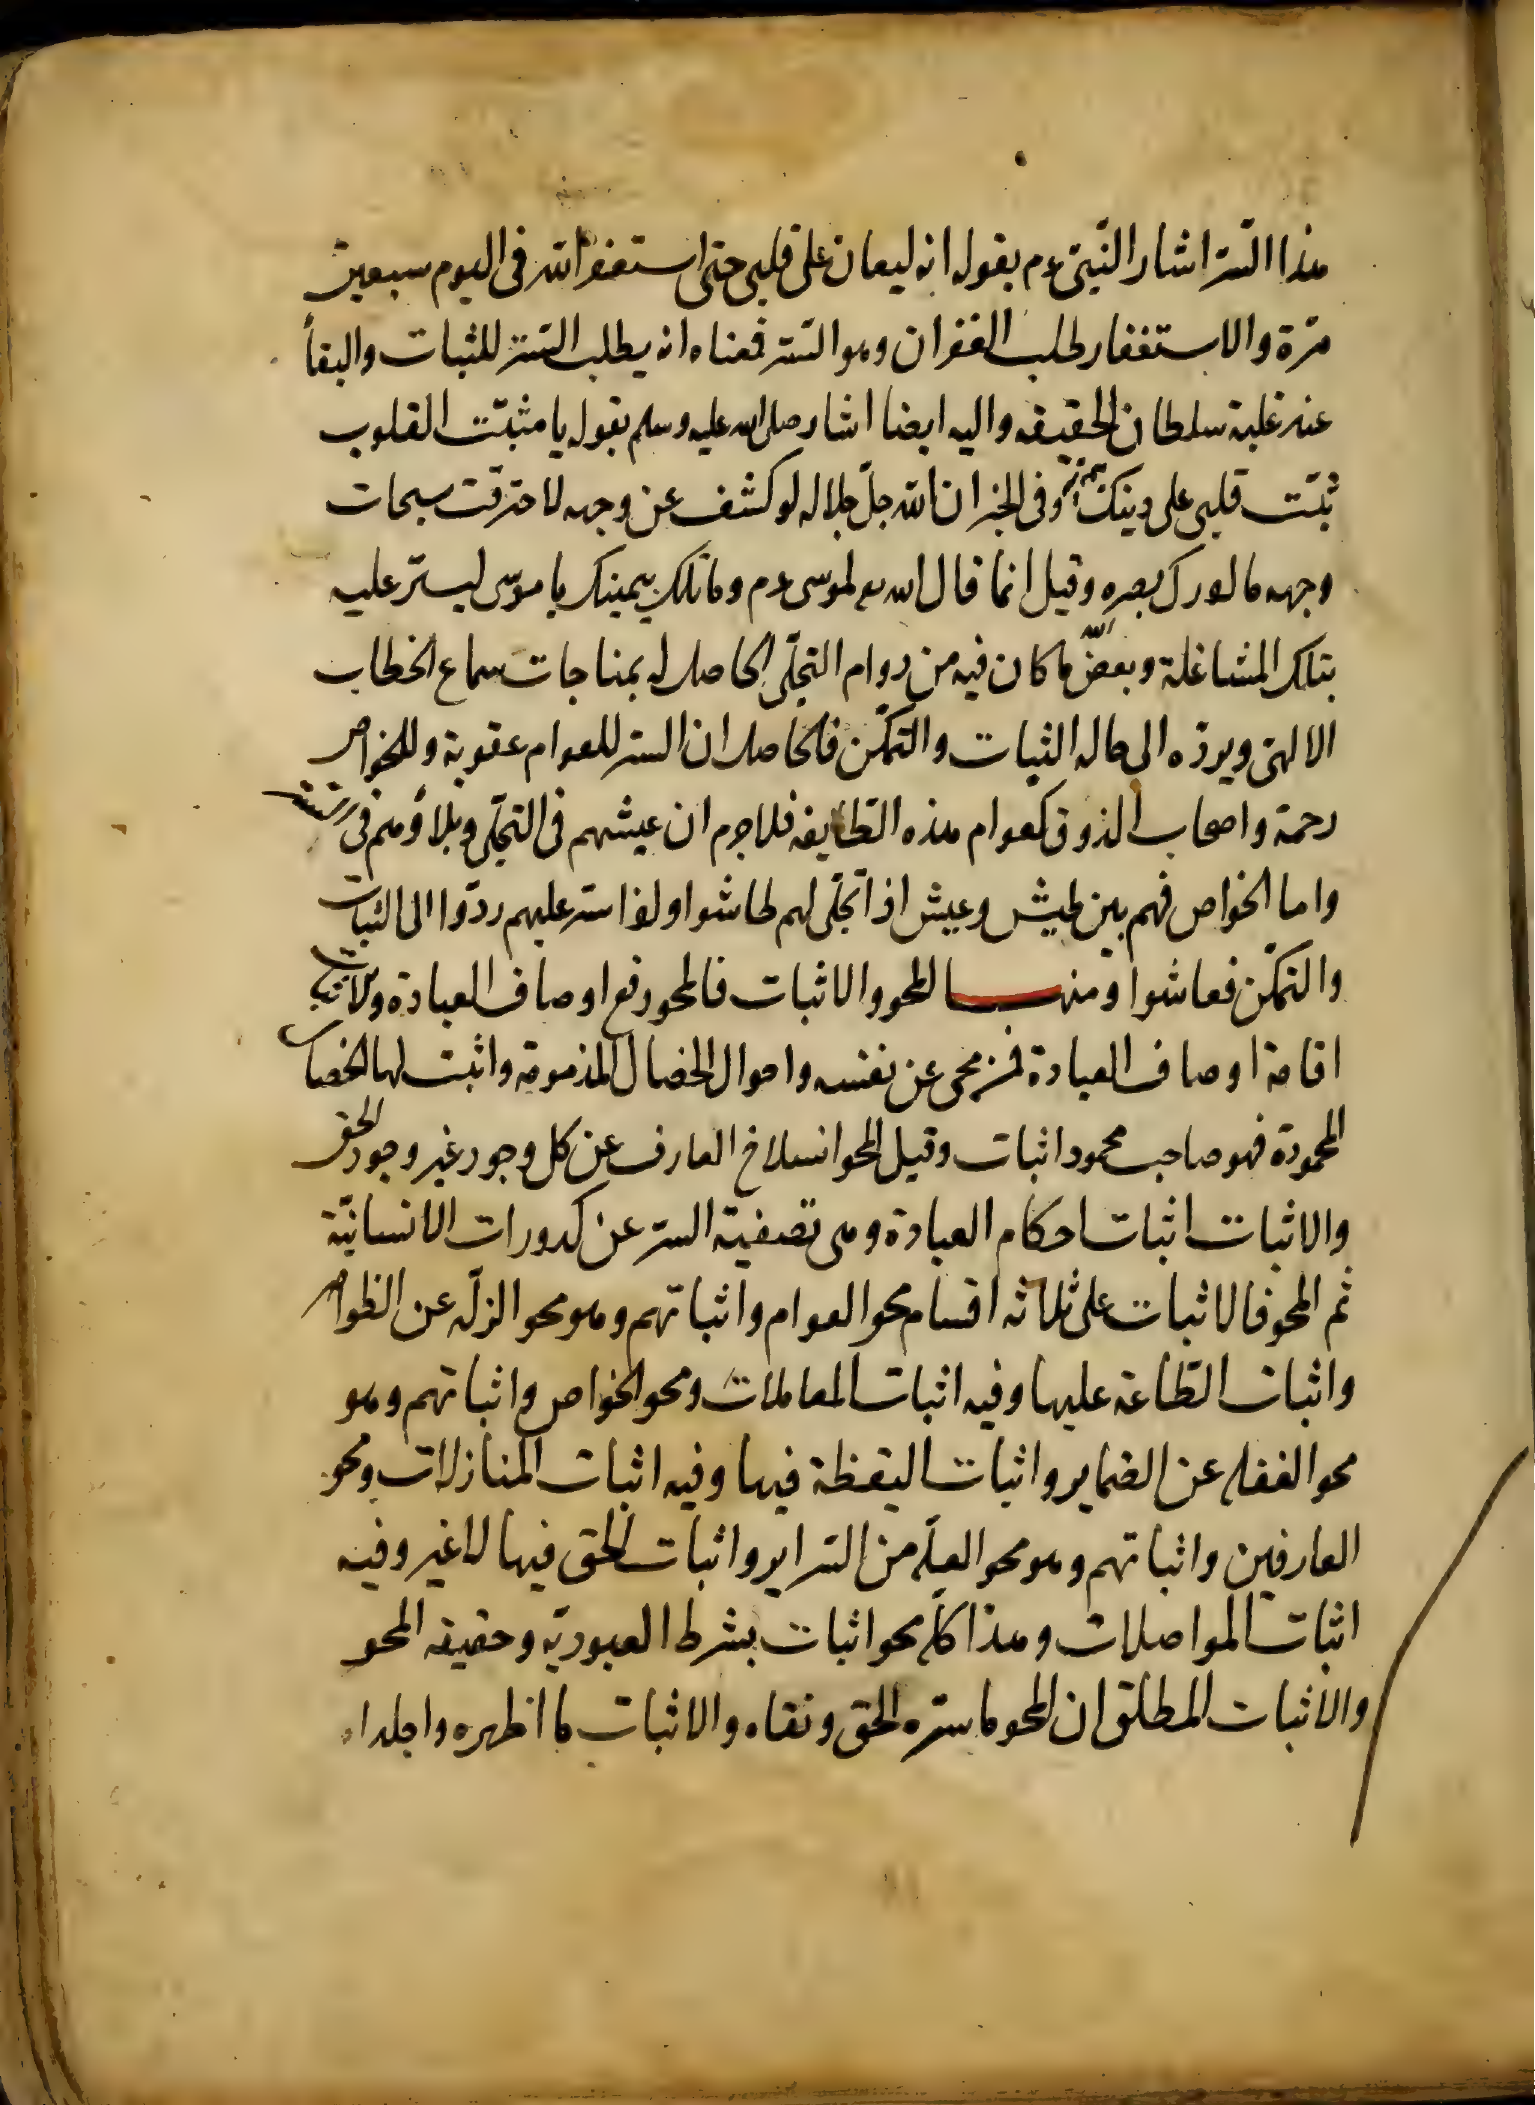 هذا الستر اشار النّبيّ عم بقوله انه ليعان على قلبي حتى استغفر الله في اليوم سبعين
مرّة والاستغفار طلب الغفران وهو الستر فمعناه انه يطلب الستر للثبات والبقأ
عند غلبة سلطان الحقيقه واليه ايضا اشار صلى الله عليه وسلم بقوله يا مثبّت القلوب
ثبّت قلبي على دينك وفي الخبر ان الله جلّ جلاله لو كشف عن وجهه لاحترقت سبحات
وجهه ما ادرك بصره وقيل انما قال الله تع لموسى عم وما تلك بيمينك يا موسى ليستر عليه
بتلك المشاغلة وبعض ما كان فيه من دوام التجلّى الحاصل له بمناجات سماع الخطاب
الالهي ويردّه الى حاله الثبات والتمكّن فالحاصل ان الستر للعوام عقوبة وللخواص
رحمة واصحاب الذوق كعوام هذه الطّايفه فلا جرم ان عيشهم في التجلّى وبلاؤهم في
واما الخواص فهم بين طيش وعيش اذا تجلّى لهم طاشوا واذا ستر عليهم ردّوا الى الثبات
والتمكّن فعاشوا ومنهــا المحو والاثبات فالمحو رفع اوصاف العبادة والاثبات
اقامة اوصاف العبادة فمن محى عن نفسه واحوال الخصال المذمومة واثبت لها الخصال
المحمودة فهو صاحب محمود اثبات وقيل المحو انسلاخ العارف عن كل وجود غير وجود الحق
والاثبات اثبات احكام العبادة وهى تصفية السر عن كدورات الانسانيّة
ثم المحو فالاثبات على ثلاثه اقسام محو العوام واثباتهم وهو محو الزلّه عن الظواهر
واثبات الطّاعة عليها وفيه اثبات المعاملات ومحو الخواص واثباتهم وهو
محو الغفله عن الضماير واثبات اليقظة فيها وفيه اثبات المنازلات ومحو
العارفين واثباتهم وهو محو العلّه من السّراير واثبات الحق فيها لا غير وفيه
اثبات المواصلات وهذا كلّه محو اثبات بشرط العبوديّه وحقيقه المحو
والاثبات المطلق ان المحو ما ستره الحق ونفاه والاثبات ما اظهره وابداه